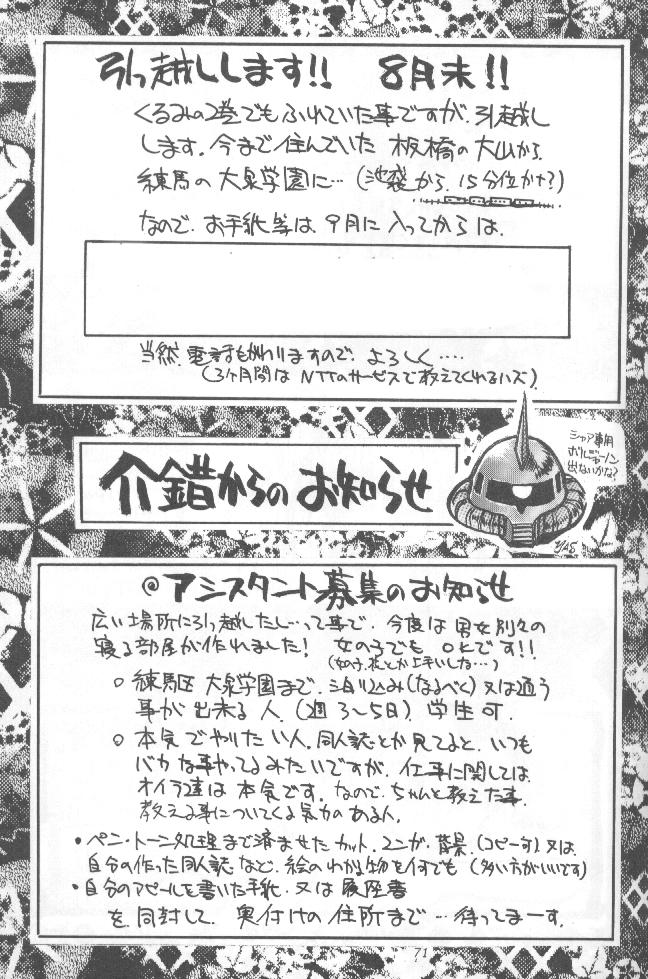 引っ越しします!! 8月末!!
くるみの2巻でもふれていた事ですが、引越し
します。今まで住んでいた 板橋の大山から、
練馬の大泉学園に…(池袋から、15分位かナ?)
なので、お手紙等は、9月に入ってからは、
当然、電話もかわりますので、よろしく‥‥
(3ヶ月間は NTTのサービスで教えてくれるハズ)
シャア専用
ポリジャーノン
出ないかな?
介錯からの お知らせ
◎アシスタント募集のお知らせ
広い場所に引っ越したし…って事で、今度は 男女別々の
寝る部屋が作れました! 女の子でも OKです!!
(女の子、花とか上手いしね…)
○ 練馬区 大泉学園まで、泊り込み(なるべく)又は通う
事が 出来る 人。(週3〜5日) 学生可。
○ 本気でやりたい人。同人誌とか見てると、いつも
バカな事やってるみたいですが、仕事に関しては
オイラ達は 本気です。なので、ちゃんと教えた事、
教える事についてくる気力のある人。
・ペン・トーン処理まで済ませたカット、マンガ、背景、(コピー可)又は、
自分の作った同人誌など、絵のわかる物を何でも(多い方がいいです)
・自分のアピールを書いた手紙、又は 履歴書
を、同封して、奥付けの住所まで…待ってまーす。
71